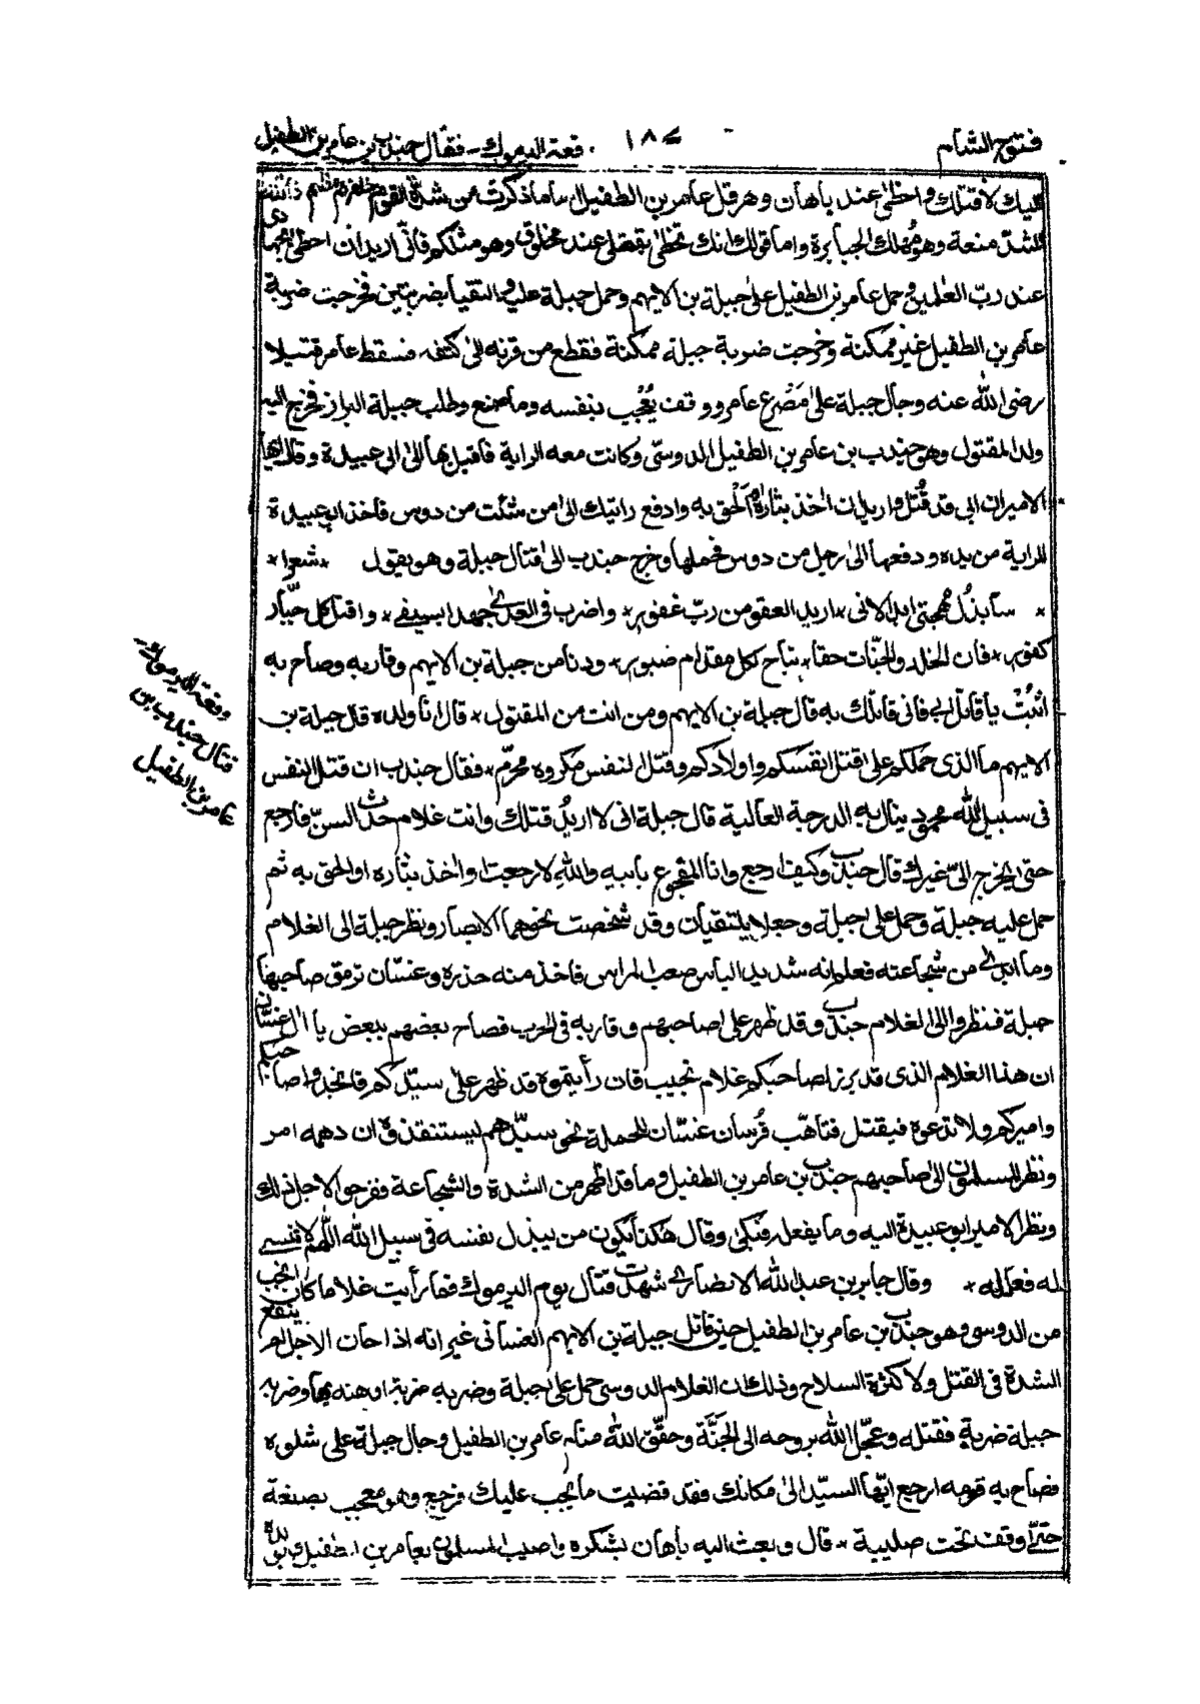 فتوح الشام ١٨٤ وقعة اليرموك - فقال جندب بن عامر بن الطفيل
عليك لاقتلك واحظى عند باهان وهرقل عامر بن الطفيل اما ما ذكرت من شدة القوم
اشد منعة وهو مهلك الجبابرة واما قولك انك تحظى بقتلى عند مخلوق وهو مثلكم فانى اريد ان احظى
عند رب العلمين وحمل عامر بن الطفيل على جبلة بن الايهم وحمل جبلة عليه والتقيا بضربتين فخرجت ضربة
عامر بن الطفيل غير ممكنة وخرجت ضربة جبلة ممكنة فقطع من قرنه الى كتفه فسقط عامر قتيلا
رضى الله عنه وجال جبلة على مصرع عامر ووقف يعجب بنفسه وما صنع وطلب جبلة البراز فخرج اليه
ولد المقتول وهو جندب بن عامر بن الطفيل الدوسى وكانت معه الراية فاقبل بها الى ابى عبيدة وقال ايها
الامير ان ابى قد قتل واريد ان اخذ بثاره او الحق به وادفع رايتك الى من شئت من دوس فاخذ ابو عبيدة
الراية من يده ودفعها الى رجل من دوس فحملها وخرج جندب الى قتال جبلة وهو يقول * شعرا *
* سابذل مهجتى ابدا لانى * اريد العفو من رب غفور * واضرب فى العدى جهدا بسيفى * واقتل كل جبار
كفور * فان الخلد والجنات حقا * تباح لكل مقدام صبور * ودنا من جبلة بن الايهم وقاربه وصاح به
اثبت يا قاتل ابى فانى قاتلك به قال جبلة بن الايهم ومن انت من المقتول * قال انا ولده قال جبلة بن
الايهم ما الذى حملكم على قتل انفسكم واولادكم وقتل النفس مكروه محرم * فقال جندب ان قتل النفس
فى سبيل الله محمود ينال به الدرجة العالية قال جبلة انى لا اريد قتلك وانت غلام حدث السن فارجع
حتى يخرج الى غيرك قال جندب وكيف ارجع وانا المفجوع بابيه والله لا رجعت او اخذ بثاره او الحق به ثم
حمل عليه جبلة وحمل على جبلة وجعلا يلتقيان وقد شخصت نحوهما الابصار ونظر جبلة الى الغلام
وما ابدى من شجاعته فعلم انه شديد الباس صعب المراس فاخذ منه حذره وغسان ترمق صاحبها
جبلة فنظروا الى الغلام جندب وقد ظهر على صاحبهم وقاربه فى الحرب فصاح بعضهم ببعض يا ال غسان
ان هذا الغلام الذى قد برز لصاحبكم غلام نجيب فان رأيتموه قد ظهر على سيدكم فانجدوا صاحبكم
واميركم ولا تدعوه فيقتل فتاهب فرسان غسان للحملة نحو سيدهم ليستنقذوه ان دهمه امر
ونظر المسلمون الى صاحبهم جندب بن عامر بن الطفيل وما قد اظهر من الشدة والشجاعة ففرحوا لاجل ذلك
ونظر الامير ابو عبيدة اليه وما يفعل فبكى وقال هكذا يكون من يبذل نفسه فى سبيل الله اللهم لا تنسى
له فعله * وقال جابر بن عبد الله الانصارى شهدت قتال يوم اليرموك فما رأيت غلاما كان انجب
من الدوسى وهو جندب بن عامر بن الطفيل حين قاتل جبلة بن الايهم الغسانى غير انه اذا حان الاجل لم ينفع
الشدة فى القتل ولا كثرة السلاح وذلك ان الغلام الدوسى حمل على جبلة وضربه ضربة اوهنه بها وضربه
جبلة ضربة فقتله وعجل الله بروحه الى الجنة وحقق الله منام عامر بن الطفيل وجال جبلة على شلوه
فصاح به قومه ارجع ايها السيد الى مكانك فقد قضيت ما يجب عليك فرجع وهو معجب بصنعه
حتى وقف تحت صليبه * قال وبعث اليه باهان يشكره واصيب المسلمون بعامر بن الطفيل وبولده
وقعة اليرموك
قتال جندب بن
عامر بن الطفيل